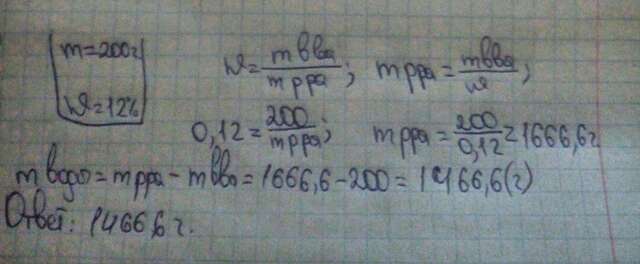 m=200г
W=12%
W = mвва / mрра ; mрра = mвва / W ;
0,12 = 200 / mрра ; mрра = 200 / 0,12 = 1666,6г
mводы = mрра - mвва = 1666,6 - 200 = 1466,6(г)
Ответ: 1466,6 г.